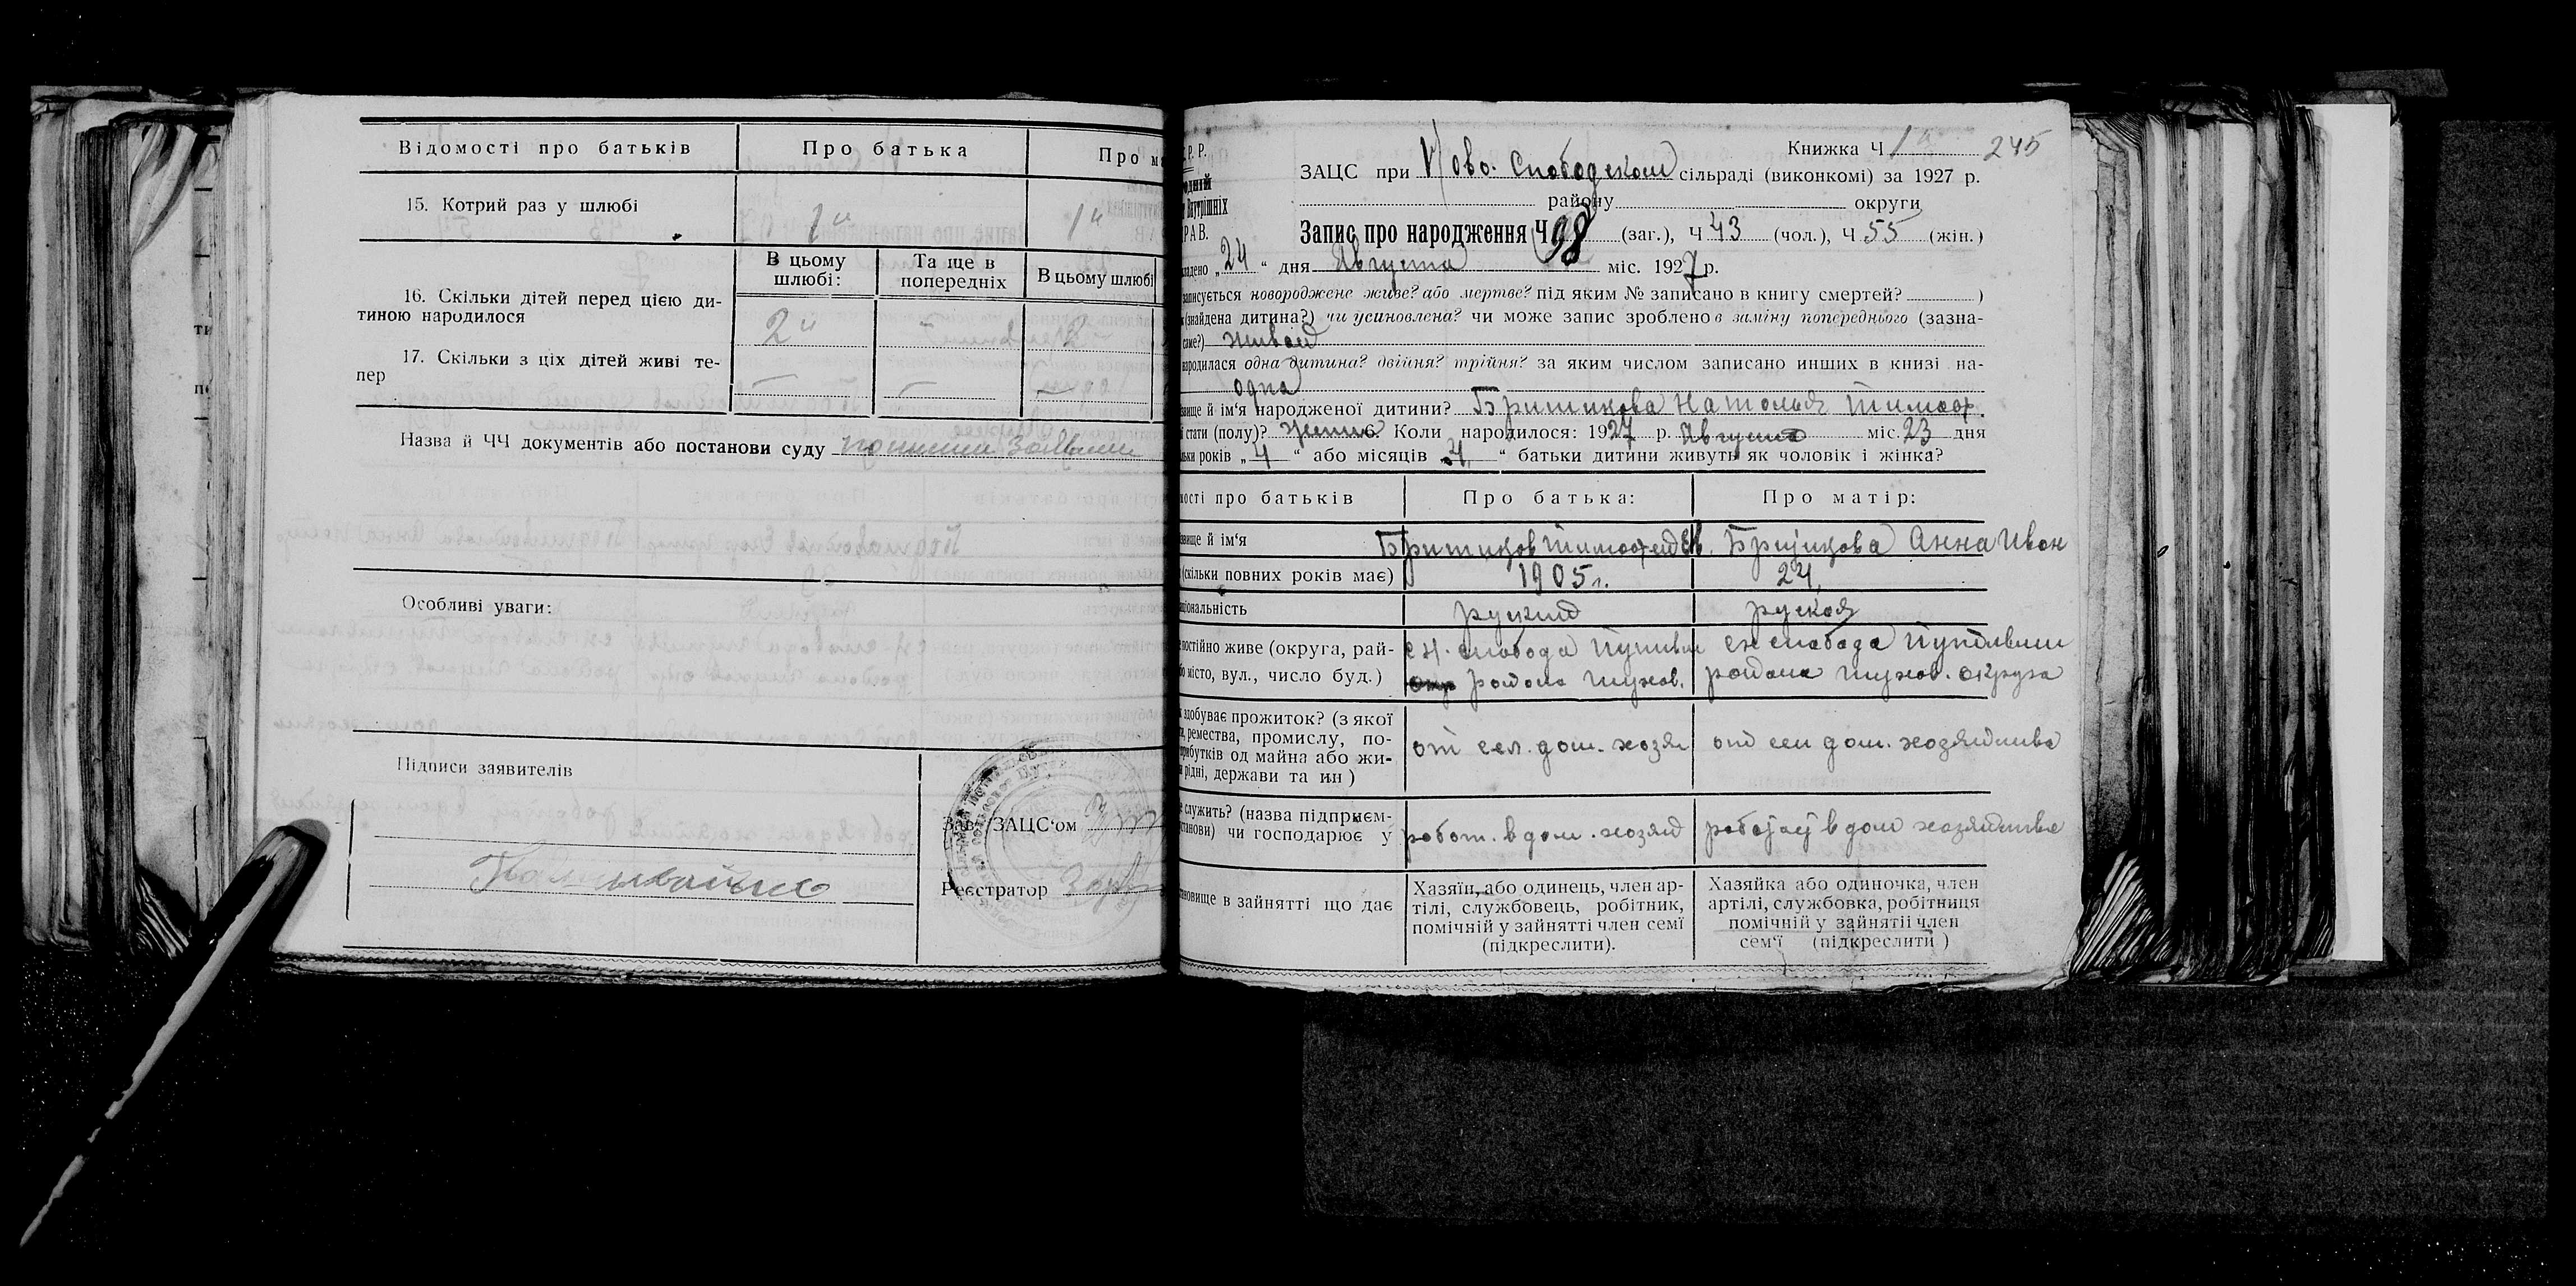 Відомості про батьків
Про батька
Про ма
15. Котрий раз у шлюбі
1й
1й
В цьому шлюбі:
Та ще в попередніх
В цьому шлюбі
16. Скільки дітей перед цією ди-
тиною народилося
2й
—
2
17. Скільки з ціх дітей живі те-
пер
—
—
Назва й ЧЧ документів або постанови суду
Особливі уваги:
Підписи заявителів
Зав. ЗАЦС‘ом
Реєстратор
Р. Р.
одній
Внутрішніх
РАВ.
Книжка Ч 1й 245
ЗАЦС при Ново-Слободском сільраді (виконкомі) за 1927 р.
району округи
Запис про народження Ч 98 (заг.), Ч 43 (чол.), Ч 55 (жін.)
кладено „24“ дня Августа міс. 1927 р.
записується новороджене живе? або мертве? під яким № записано в книгу смертей? )
(знайдена дитина?) чи усиновлена? чи може запис зроблено в заміну попереднього (зазна-
саме?) живой
народилася одна дитина? двійня? трійня? за яким числом записано инших в книзі на-
одна
звище й ім‘я народженої дитини? Бритикова Наталья Тимоф.
стати (полу)? женс. Коли народилося: 1927 р. Августа міс. 23 дня
льки років „4“ або місяців „4“ батьки дитини живуть як чоловік і жінка?
мості про батьків
Про батька:
Про матір:
звище й ім‘я
Бритиков Тимофей Ев.
Бритикова Анна Иван
(скільки повних років має)
1905 г.
24
ціональність
руский
руская
постійно живе (округа, рай-
бо місто, вул., число буд.)
с Н. слобода Путивл
района Глухов.
с Н слобода Путивльи
района Глухов. округа
здобуває прожиток? (з якої
, ремества, промислу, по-
прибутків од майна або жи-
рідні, держави та ин)
от сел. дом. хозя
от сел дом. хозяйства
служить? (назва підприєм-
станови) чи господарює у
робот. в дом. хозяй
работает в дом хозяйстве
новище в зайнятті що дає
Хазяїн, або одинець, член ар-
тілі, службовець, робітник,
помічній у зайнятті член семї
(підкреслити).
Хазяйка або одиночка, член
артілі, службовка, робітниця
помічній у зайнятіі член
сем‘ї (підкреслити)